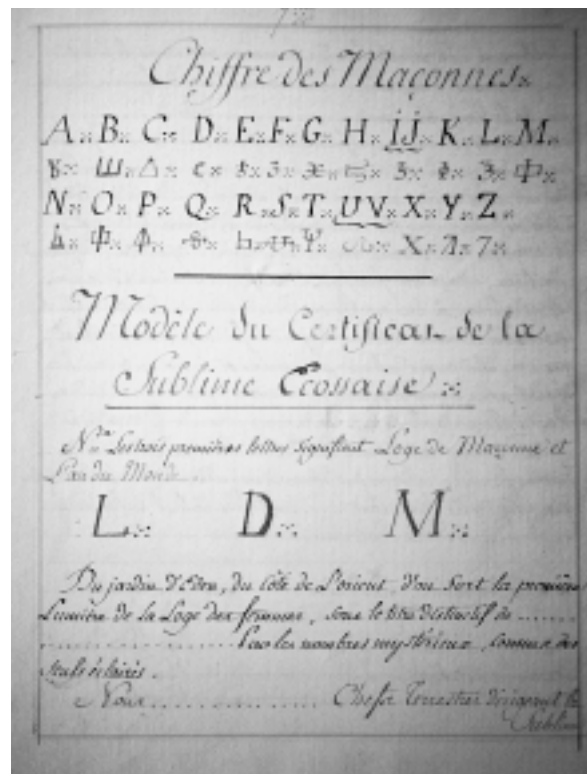 Chiffre des Maçonnes
A B C D E F G H I J K L M
N O P Q R S T U V X Y Z
Modèle du Certificat de la
Sublime Ecossaise
Les trois premières lettres signifient Loge de Maçonne et
du Monde
L D M
Du jardin d'Eden, du côté de L'orient, d'ou Sort la première
Lumière de la Loge des femmes, sous le titre distinctif de ......
.................. Par les nombres mystérieux, connus des
seuls éclairés.
Nous .................. Chefs Terrestres dirigeant la
Sublime